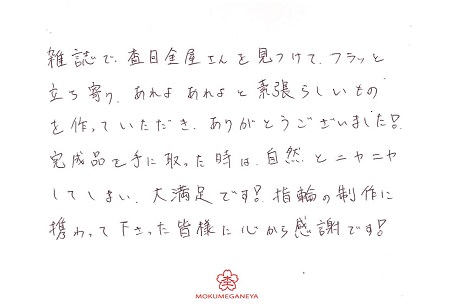 雑誌で、杢目金屋さんを見つけて、フラッと
立ち寄り、あれよあれよと素張らしいもの
を作っていただき、ありがとうございました!
完成品を手に取った時は、自然とニヤニヤ
してしまい、大満足です!指輪の制作に
携わって下さった皆様に心から感謝です!
MOKUMEGANEYA